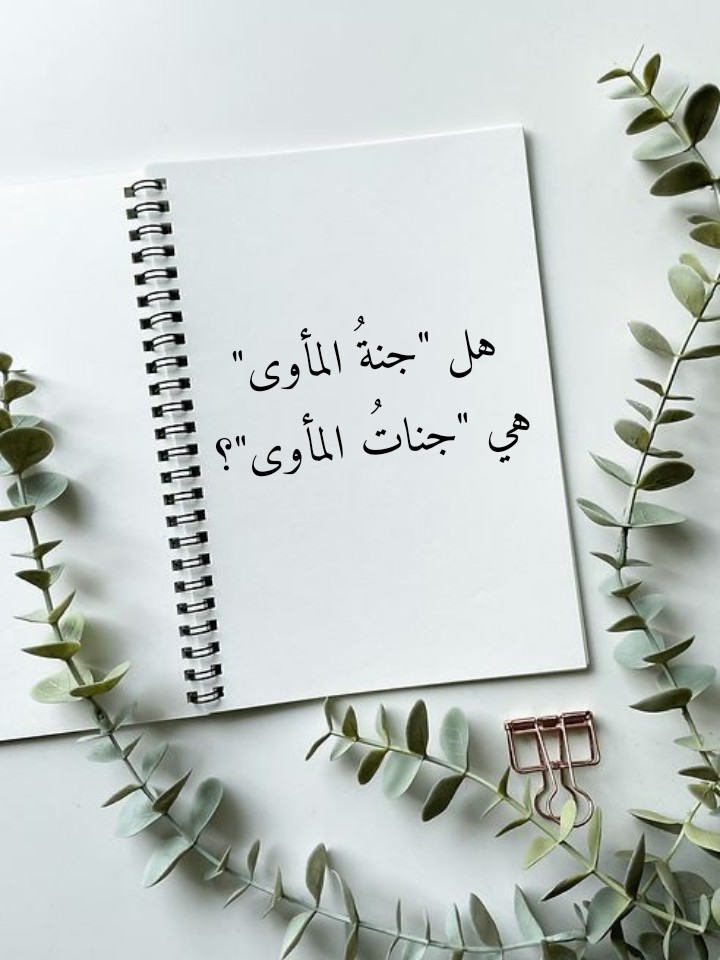 هل "جنةُ المأوى"
هي "جناتُ المأوى"؟